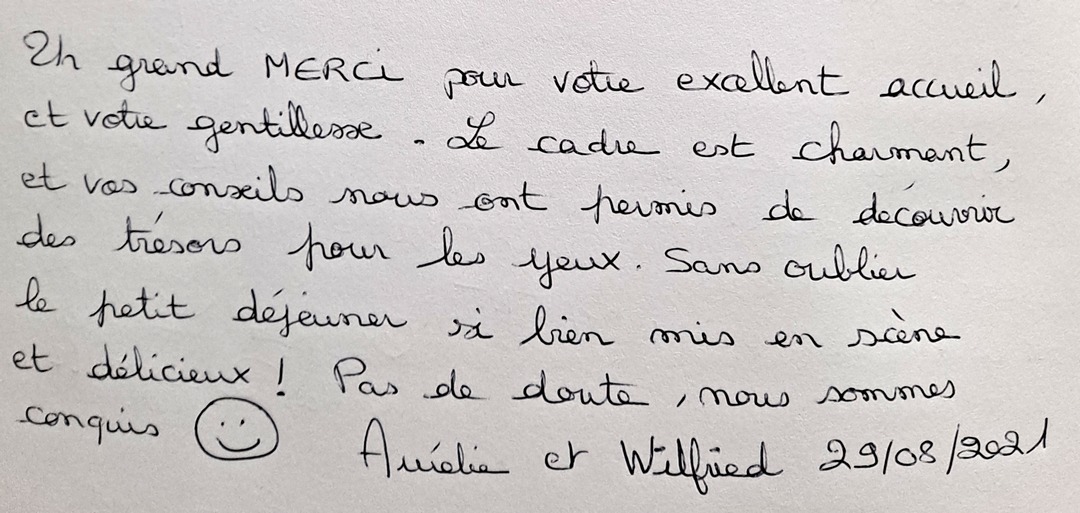 Un grand MERCi pour votre excellent accueil,
et votre gentillesse. Le cadre est charmant,
et vos conseils nous ont permis de découvrir
des trésors pour les yeux. Sans oublier
le petit déjeuner si bien mis en scène
et délicieux ! Pas de doute, nous sommes
conquis
Aurélie et Wilfried 29/08/2021